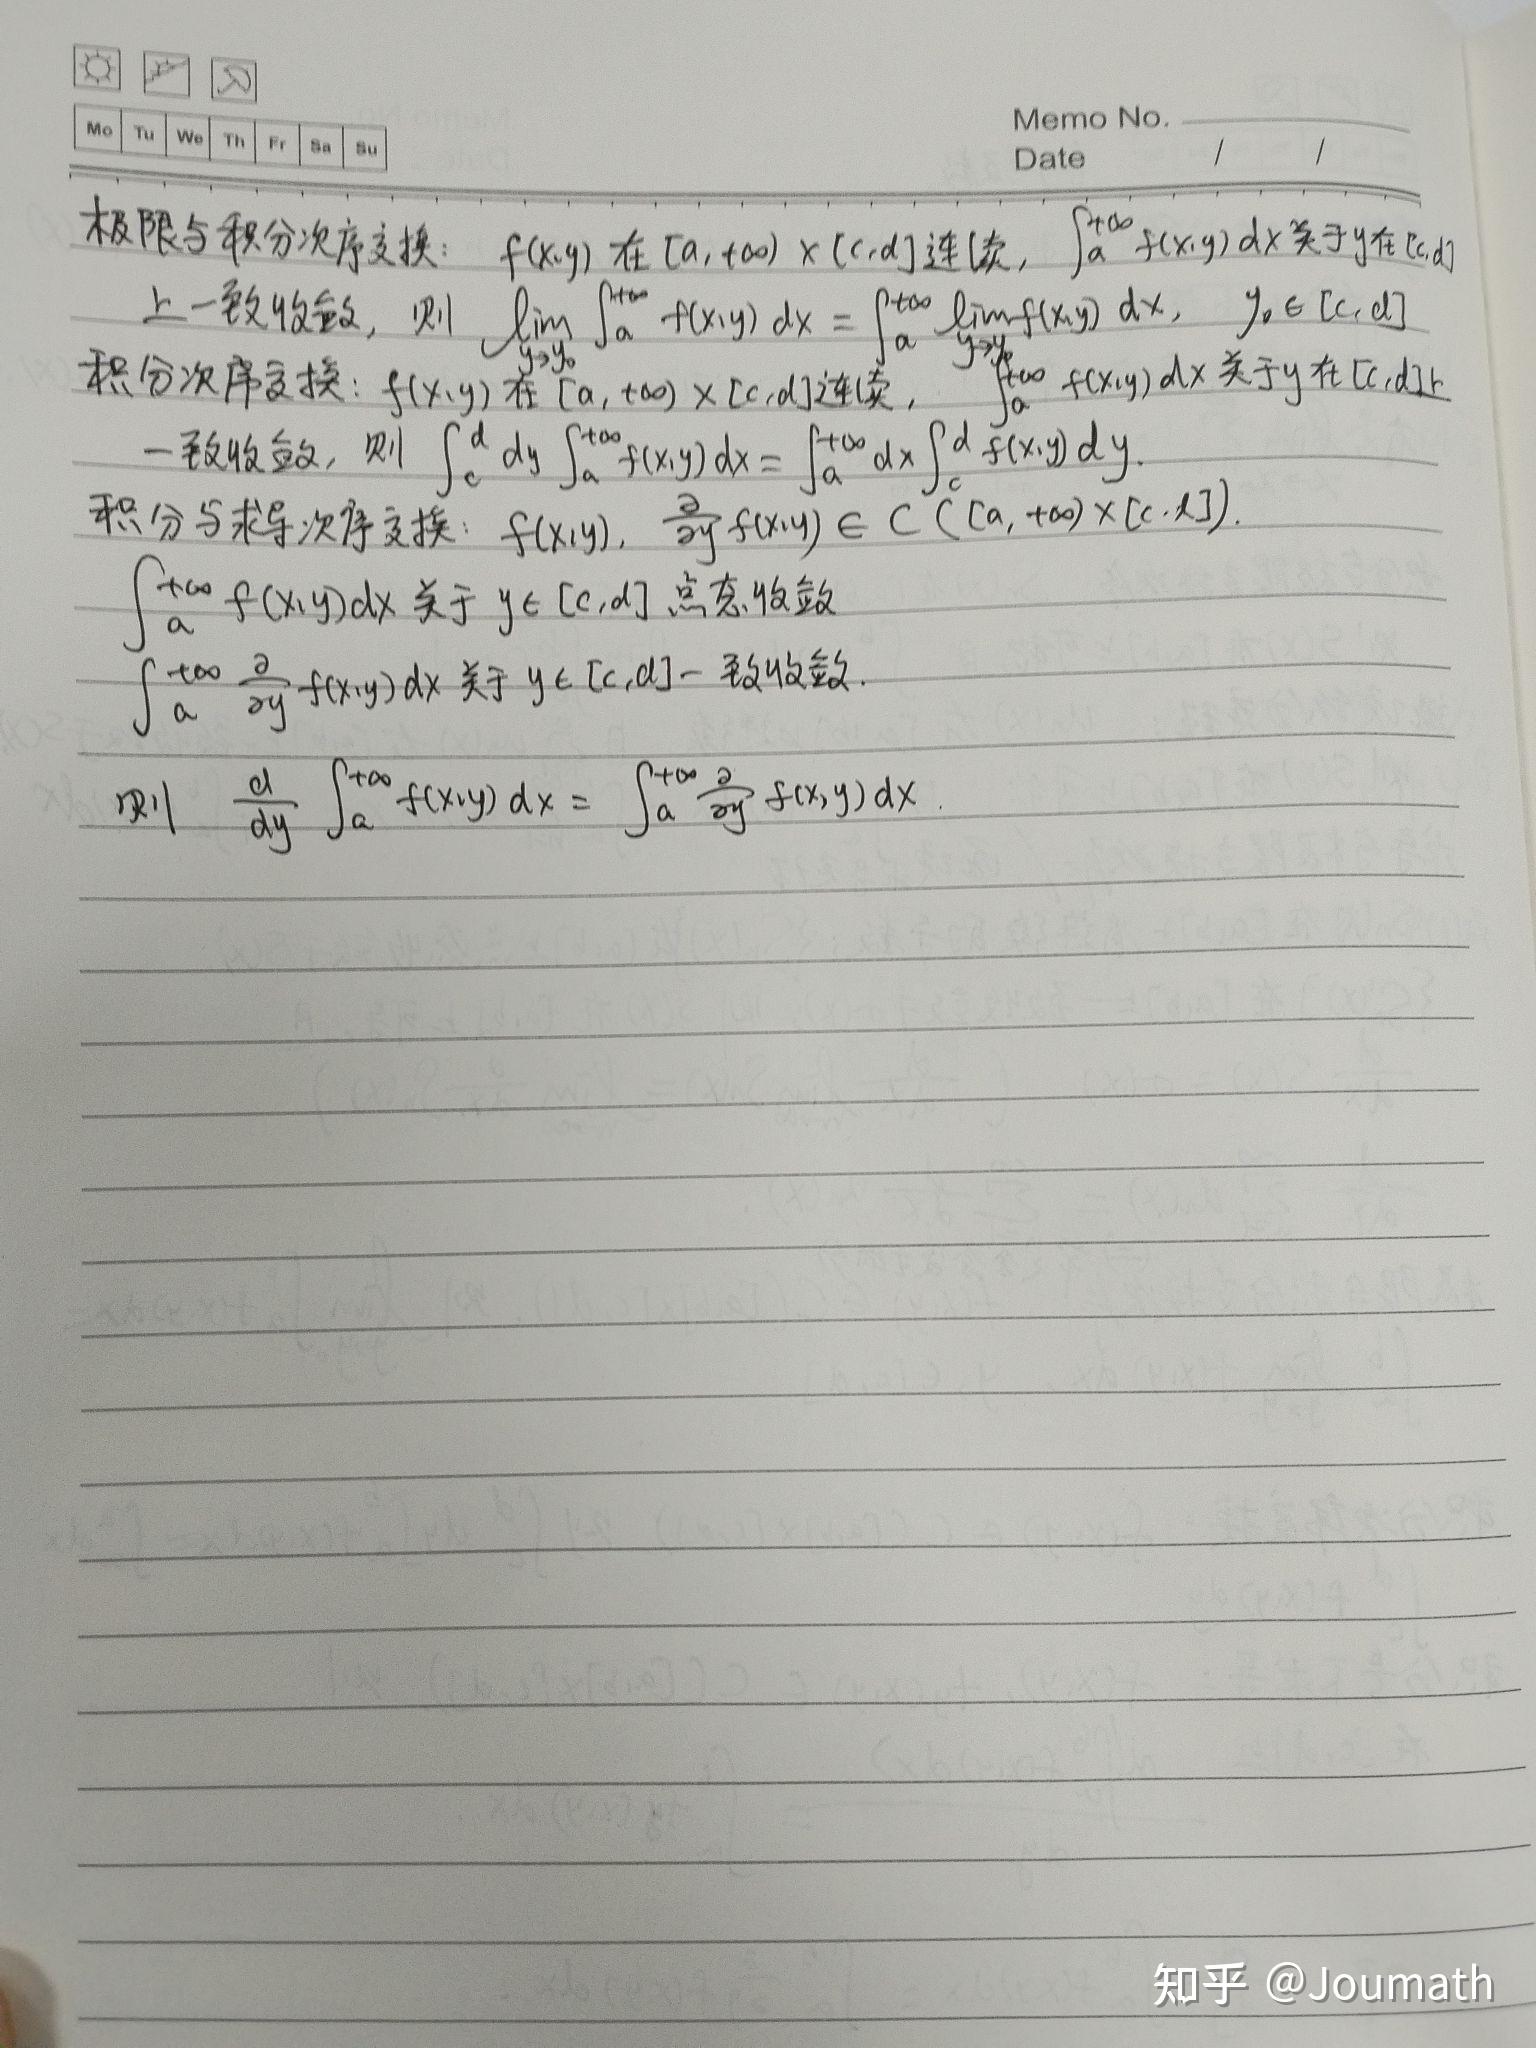 Mo Tu We Th Fr Sa Su
Memo No.
Date / /
极限与积分次序交换: f(x,y) 在 [a,+∞) × [c,d] 连续, ∫_a^{+∞} f(x,y) dx 关于 y 在 [c,d]
上一致收敛, 则 lim_{y→y₀} ∫_a^{+∞} f(x,y) dx = ∫_a^{+∞} lim_{y→y₀} f(x,y) dx, y₀ ∈ [c,d]
积分次序交换: f(x,y) 在 [a,+∞) × [c,d] 连续, ∫_a^{+∞} f(x,y) dx 关于 y 在 [c,d] 上
一致收敛, 则 ∫_c^d dy ∫_a^{+∞} f(x,y) dx = ∫_a^{+∞} dx ∫_c^d f(x,y) dy.
积分与求导次序交换: f(x,y), ∂/∂y f(x,y) ∈ C([a,+∞) × [c,d]).
∫_a^{+∞} f(x,y) dx 关于 y ∈ [c,d] 点态收敛
∫_a^{+∞} ∂/∂y f(x,y) dx 关于 y ∈ [c,d] 一致收敛.
则 d/dy ∫_a^{+∞} f(x,y) dx = ∫_a^{+∞} ∂/∂y f(x,y) dx.
知乎 @Joumath